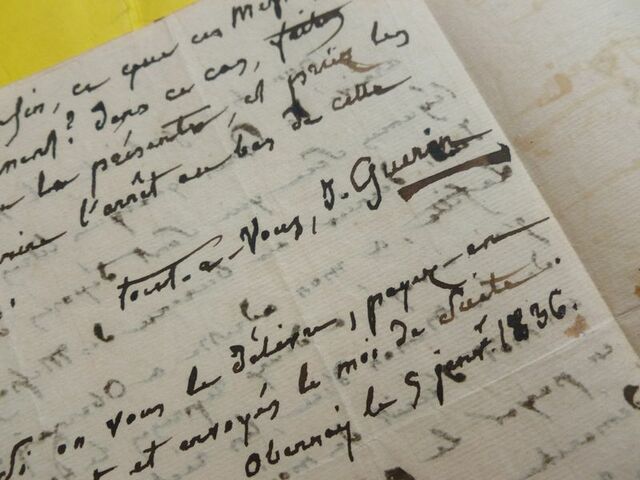 enfin, ce que ces
dans ce cas, faites
la présente, et priez les
l'arrêt au bas de cette
tout-à-Vous, J. Guerin
Si on vous le délivre, payez-en
et envoyés le moi de suite.
Obernay le 5 janvr 1836.